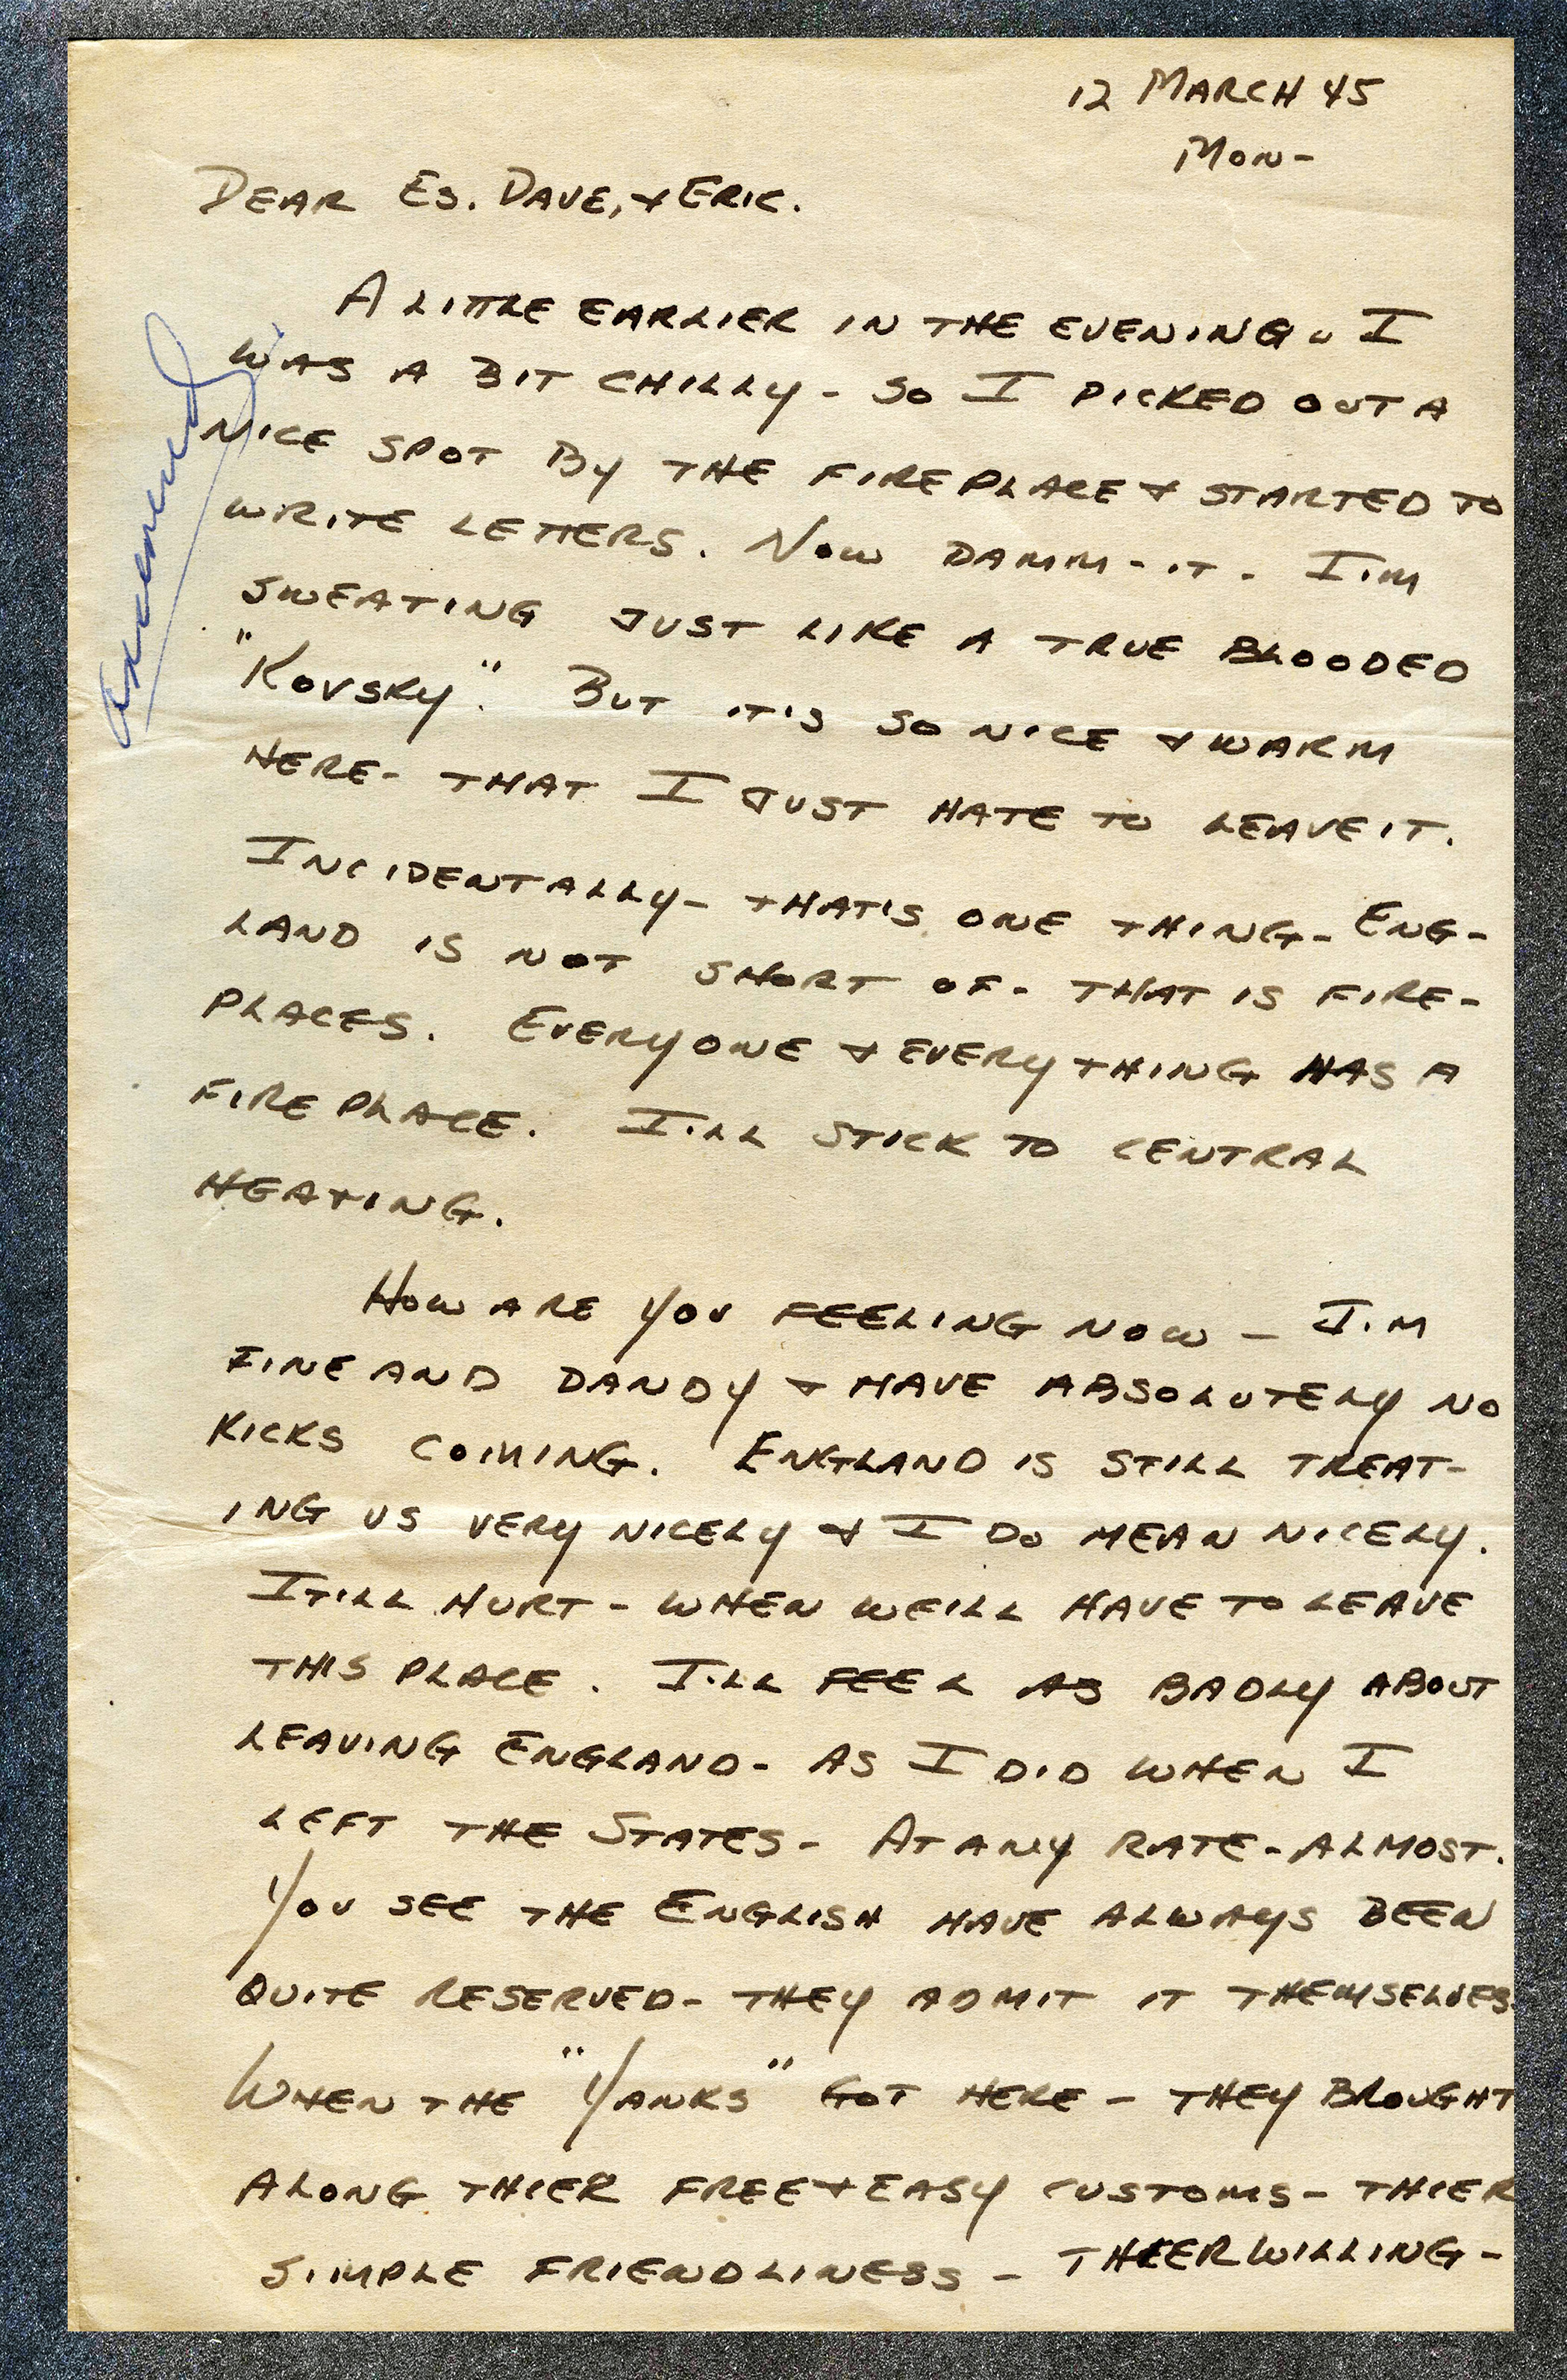 12 MARCH 45
MON-
DEAR ES. DAVE, & ERIC.
A LITTLE EARLIER IN THE EVENING - I
WAS A BIT CHILLY - SO I PICKED OUT A
NICE SPOT BY THE FIREPLACE & STARTED TO
WRITE LETTERS. NOW DAMM-IT - I'M
SWEATING JUST LIKE A TRUE BLOODED
"KOVSKY". BUT IT'S SO NICE & WARM
HERE - THAT I JUST HATE TO LEAVE IT.
INCIDENTALLY - THAT'S ONE THING - ENG-
LAND IS NOT SHORT OF - THAT IS FIRE-
PLACES. EVERYONE & EVERYTHING HAS A
FIREPLACE. I'LL STICK TO CENTRAL
HEATING.
HOW ARE YOU FEELING NOW - I'M
FINE AND DANDY & HAVE ABSOLUTELY NO
KICKS COMING. ENGLAND IS STILL TREAT-
ING US VERY NICELY & I DO MEAN NICELY.
IT'LL HURT - WHEN WE'LL HAVE TO LEAVE
THIS PLACE. I'LL FEEL AS BADLY ABOUT
LEAVING ENGLAND - AS I DID WHEN I
LEFT THE STATES - AT ANY RATE - ALMOST.
YOU SEE THE ENGLISH HAVE ALWAYS BEEN
QUITE RESERVED - THEY ADMIT IT THEMSELVES.
WHEN THE "YANKS" GOT HERE - THEY BROUGHT
ALONG THIER FREE & EASY CUSTOMS - THIER
SIMPLE FRIENDLINESS - THIER WILLING-